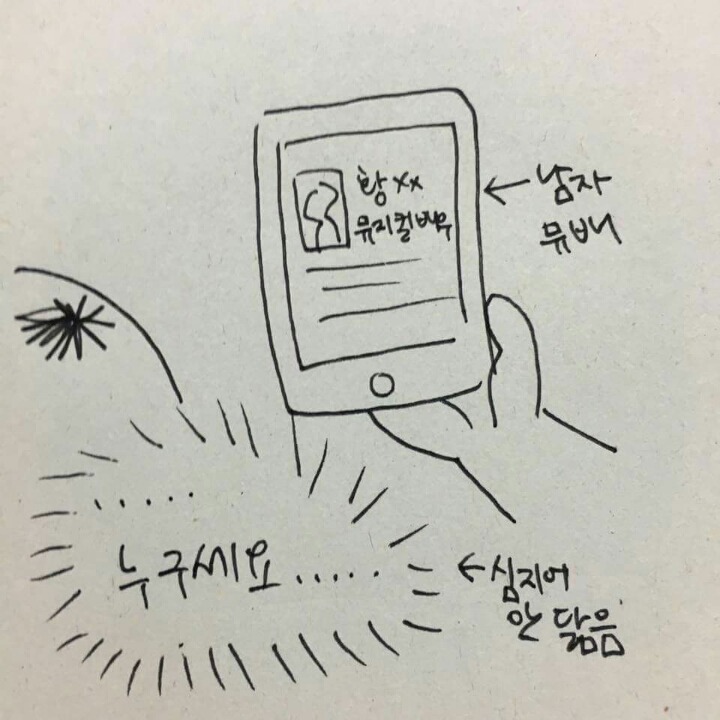 황xx
뮤지컬배우
←남자
뮤배
.....
누구세요.....
←심지어
안 닮음